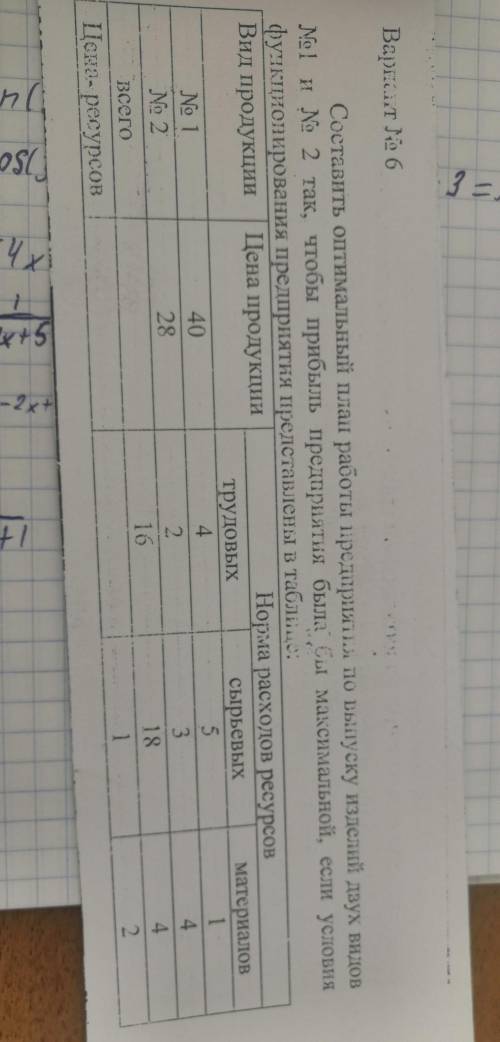 Вариант № 6
Составить оптимальный план работы предприятия по выпуску изделий двух видов
№1 и № 2 так, чтобы прибыль предприятия была бы максимальной, если условия
функционирования предприятия представлены в таблице:
Вид продукции Цена продукции Норма расходов ресурсов
трудовых сырьевых материалов
№ 1 40 4 5 1
№ 2 28 2 3 4
всего 16 18 4
Цена ресурсов 1 2
3 =
4x
1
x+5
-2x+
+1